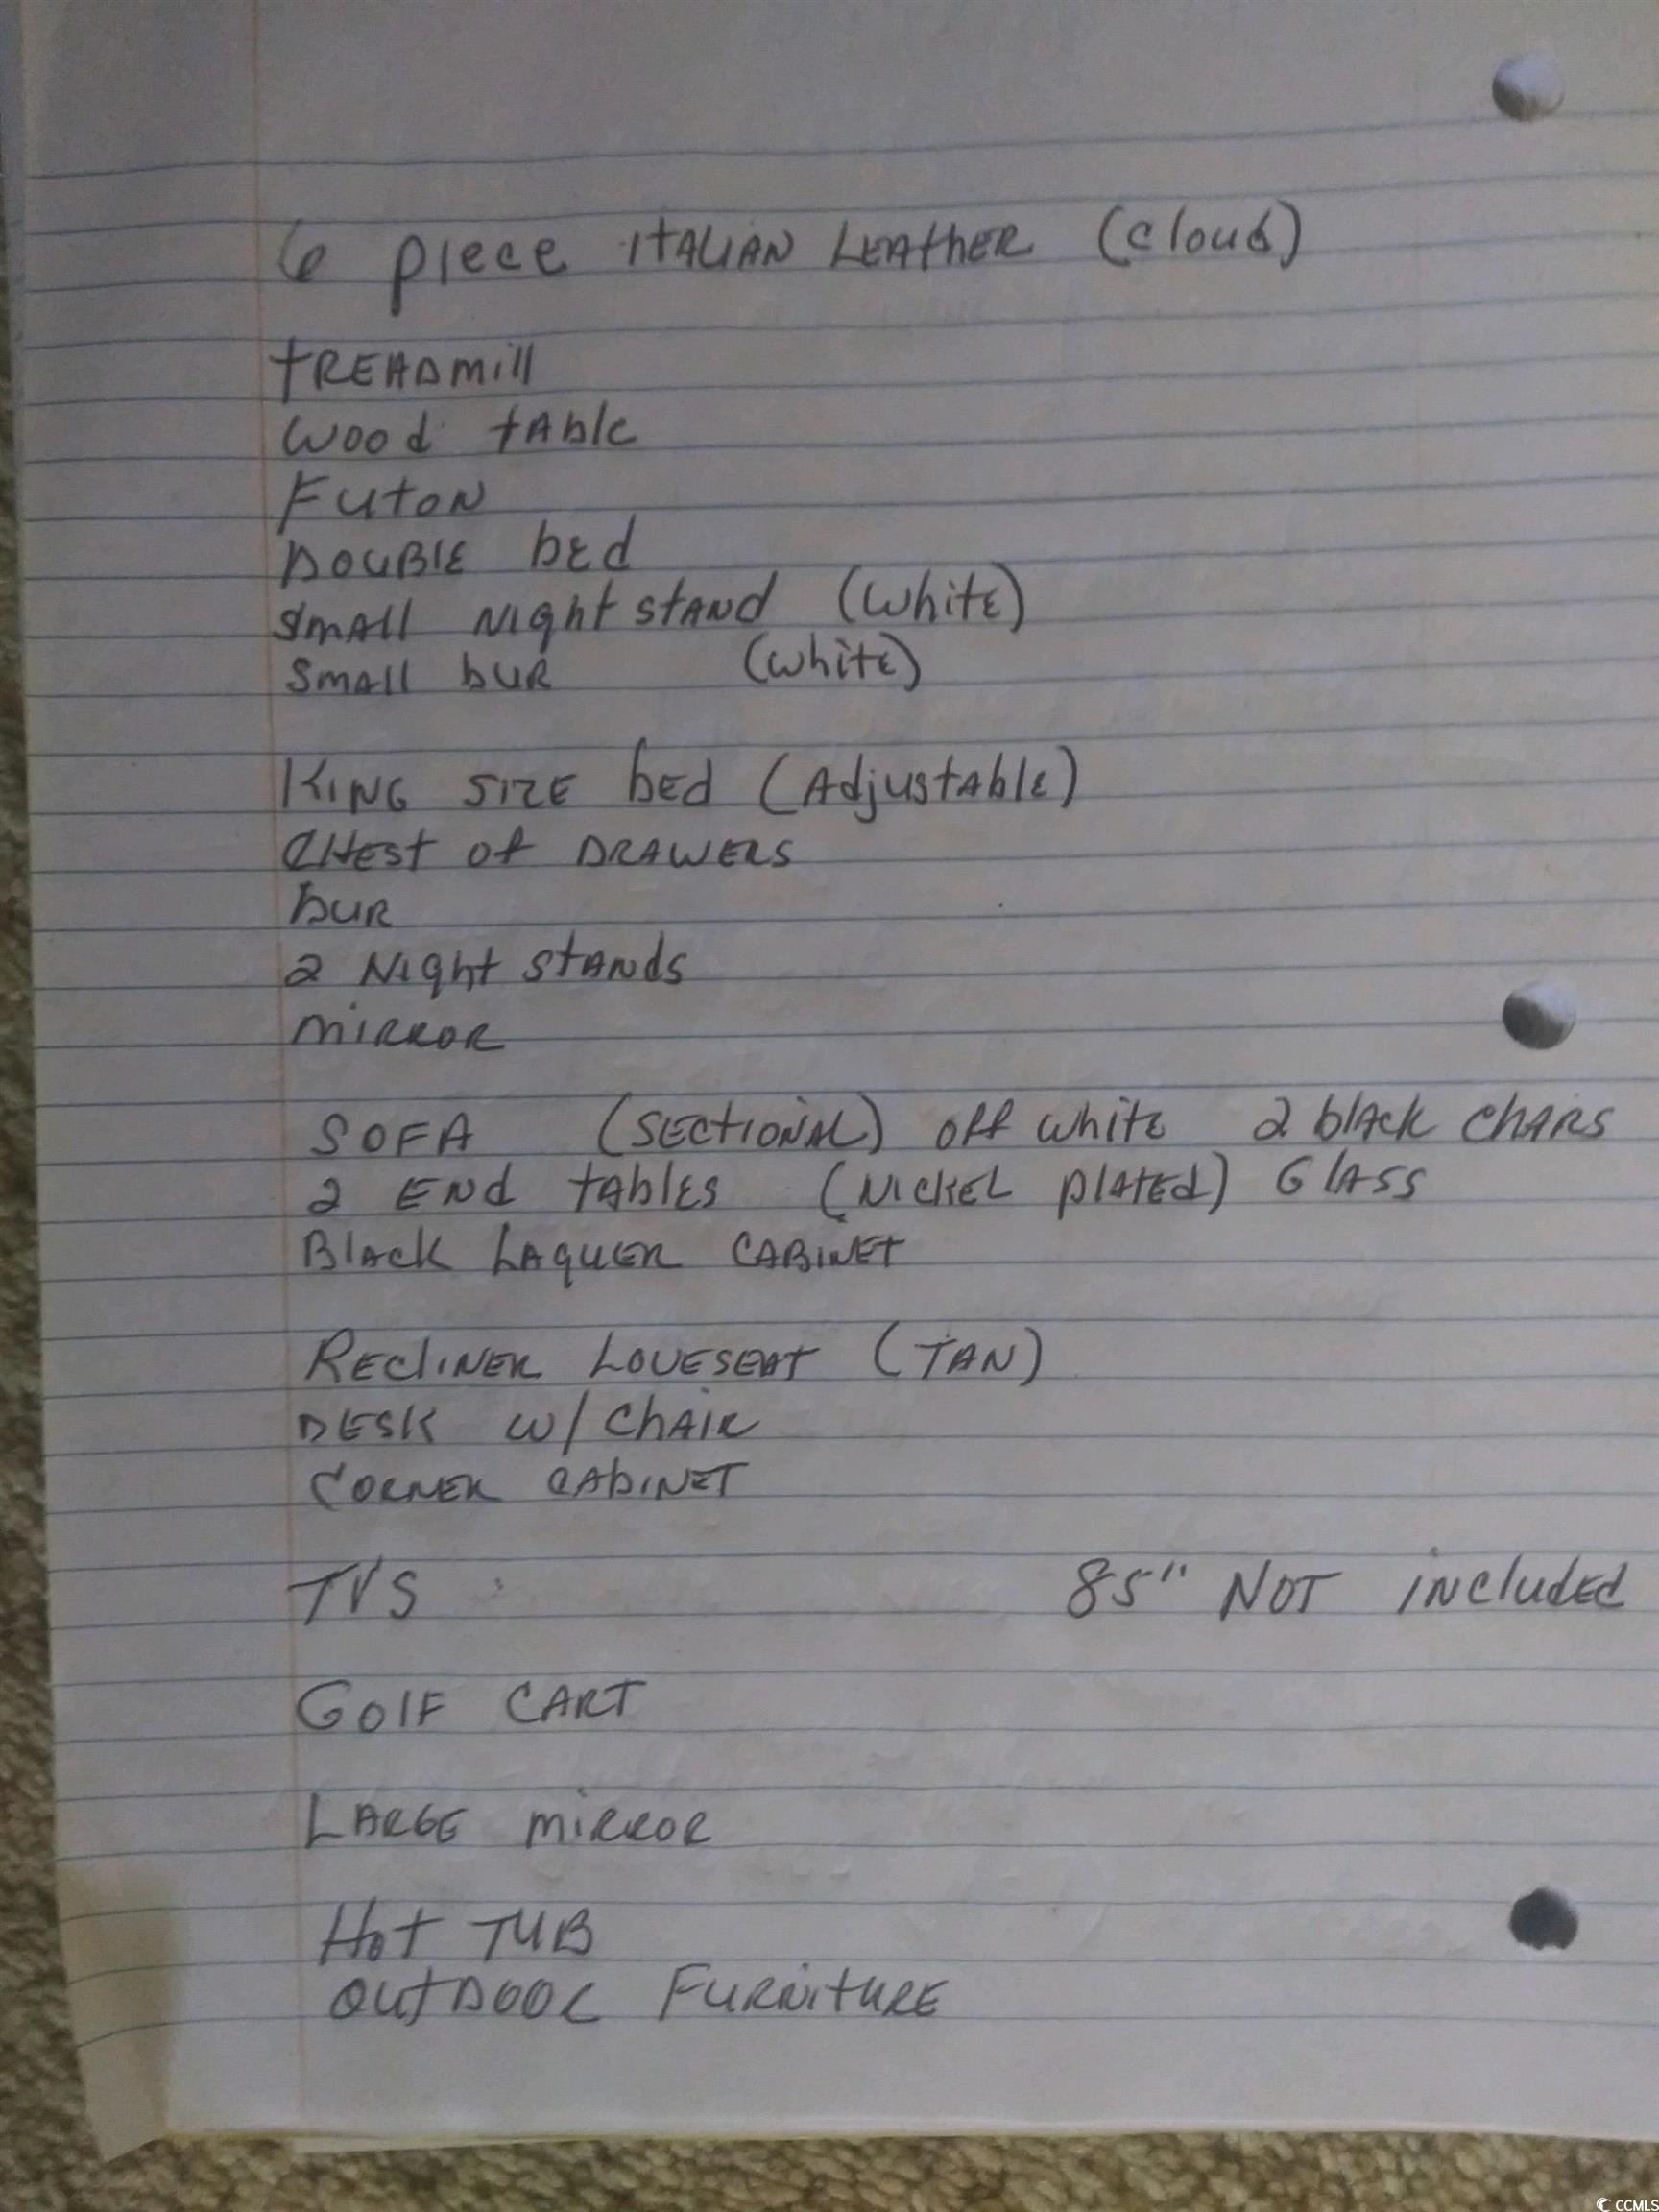 6 piece ITALIAN LEATHER (cloud)
TREADmill
Wood tAble
FUTON
DOUBLE bEd
SMAll Night stAND (White)
Small bUR (White)
KING SIZE bEd (AdjustAblE)
CHEST of DRAWERS
bUR
2 Night stANds
MIRROR
SOFA (SECTIONAL) off white 2 blACK ChARS
2 ENd tAblES (NICKEL plATEd) GlASS
BlACK LAQUER CABINET
RECliNER LOVESEAT (TAN)
DESK w/ ChAIR
CORNER CAbINET
TV'S 85" NOT iNcludEd
GOlF CART
LARGE MIRROR
Hot TUB
OUTDOOR FURNiTURE
© CCMLS